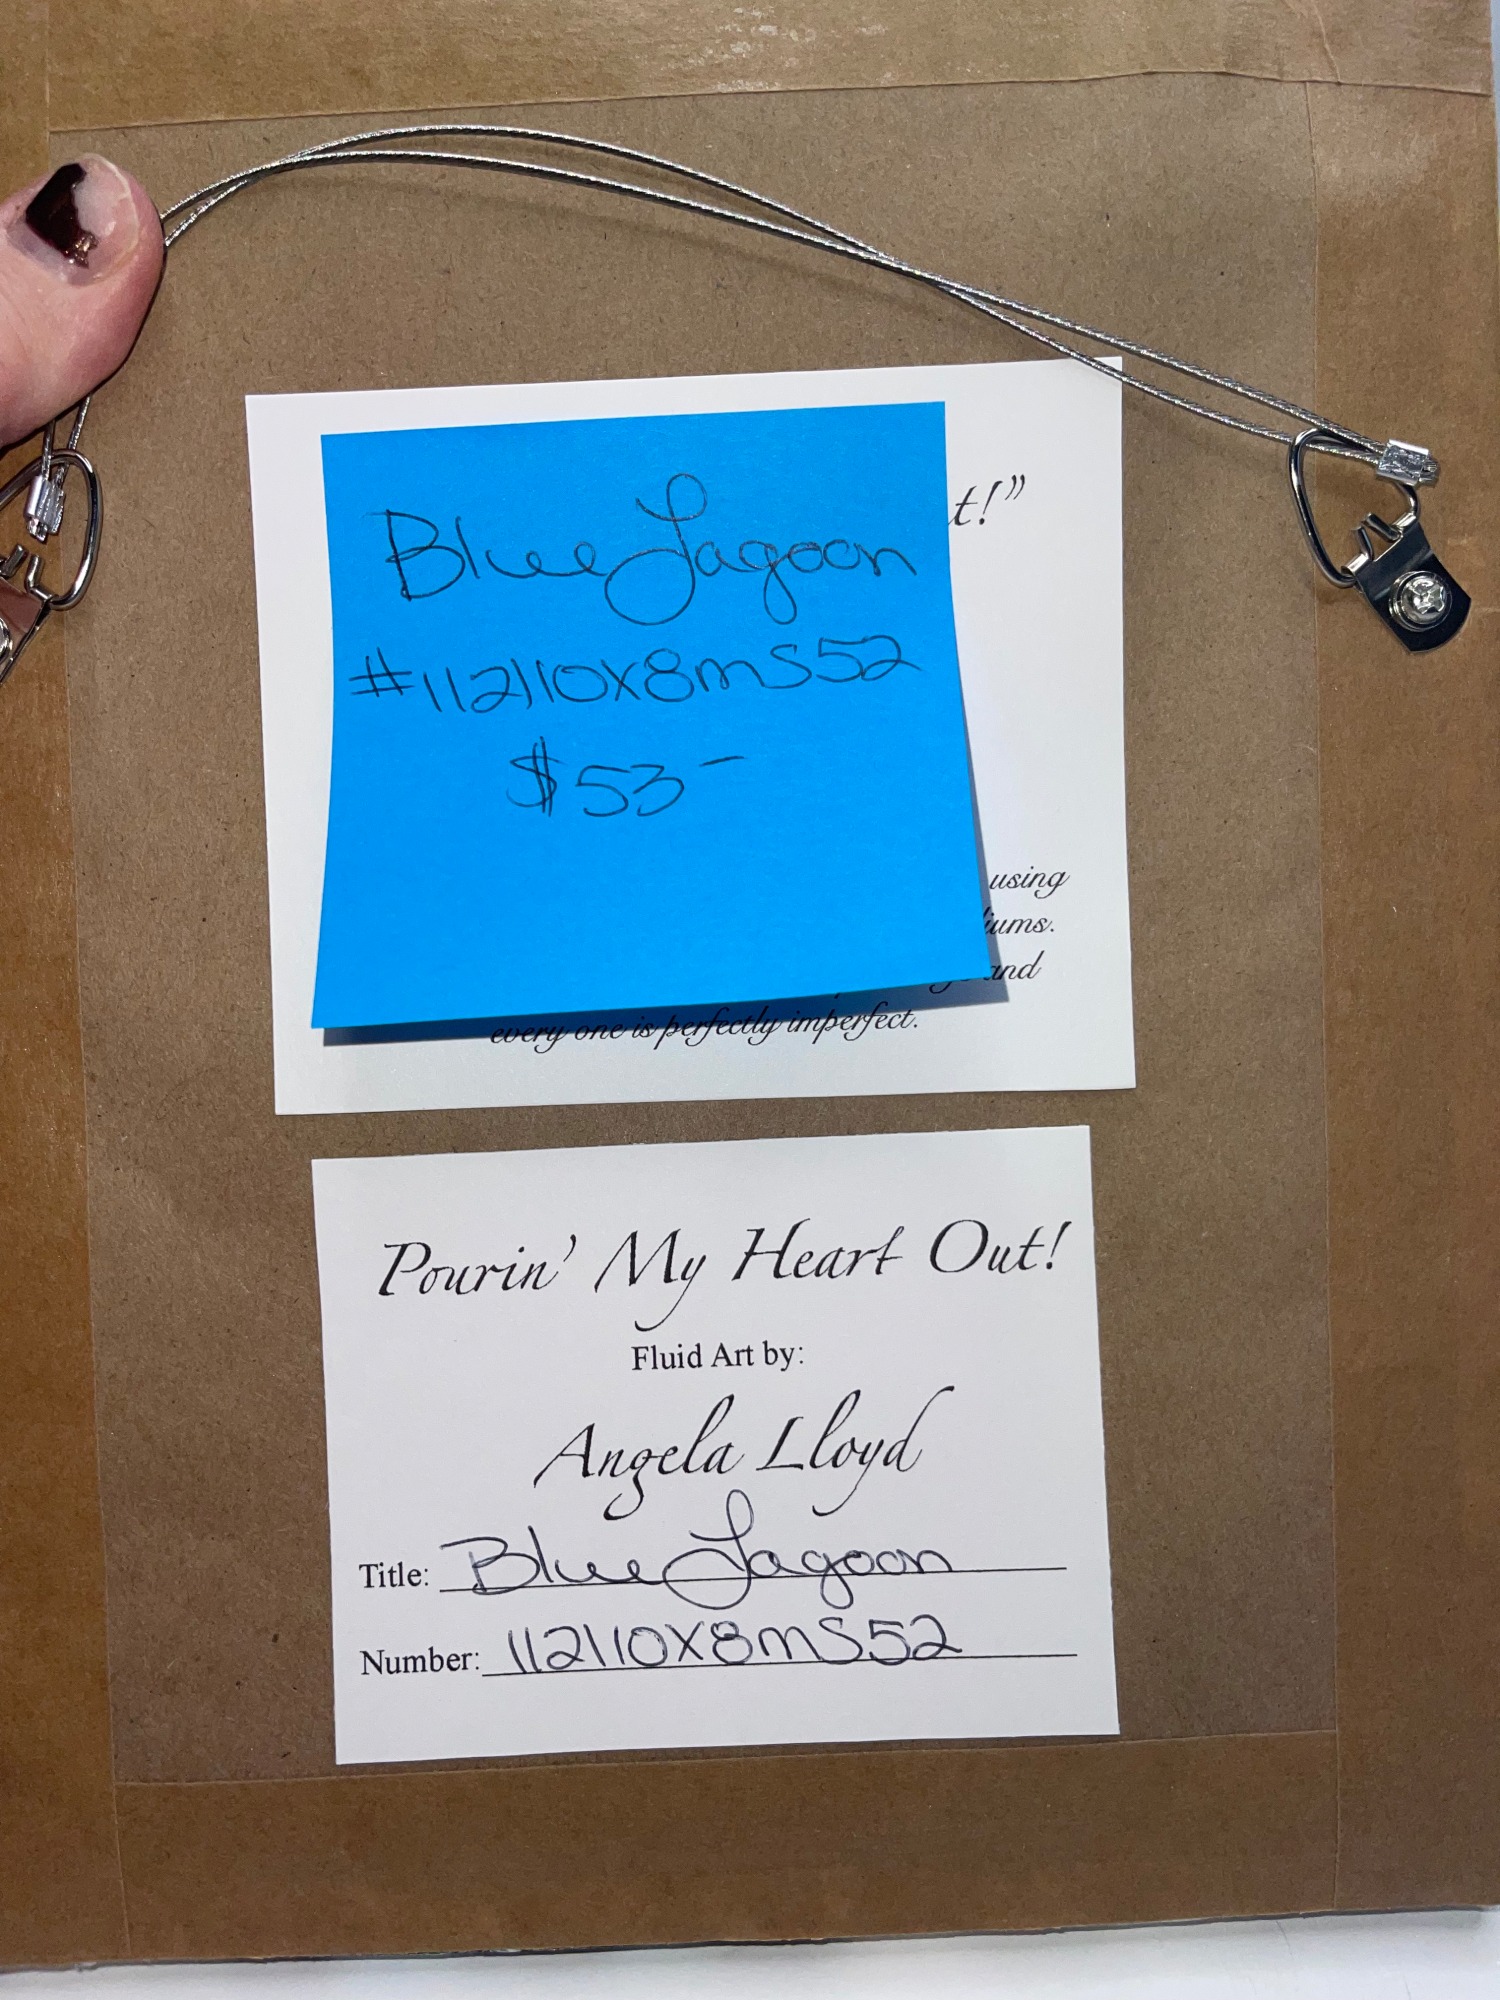 Blue Lagoon
#112110X8MS52
$53-
t!”
using
iums.
and
every one is perfectly imperfect.
Pourin' My Heart Out!
Fluid Art by:
Angela Lloyd
Title: Blue Lagoon
Number: 112110X8MS52